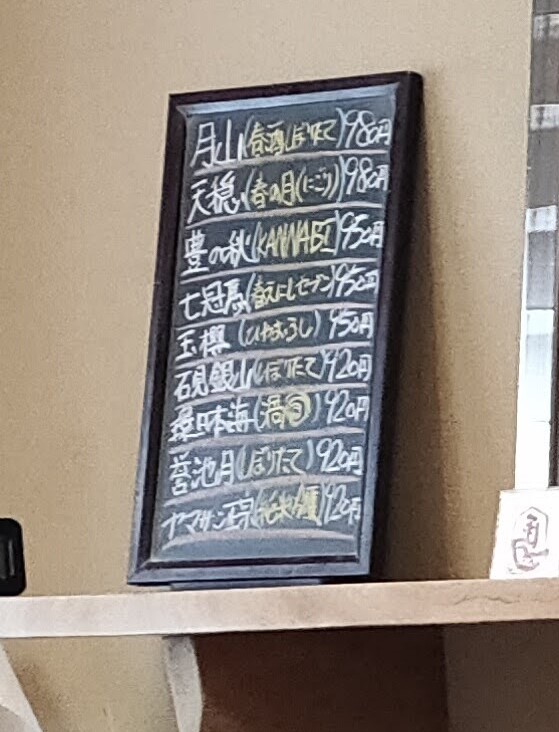 月山(春酒しぼりたて)980円
天穏(春の月(にごり))980円
豊の秋(KANNABI)950円
七冠馬 950円
玉櫻(ひやおろし)950円
石見銀山(しぼりたて)920円
環日本海 920円
誉池月(しぼりたて)920円
ヤマサン正宗 920円